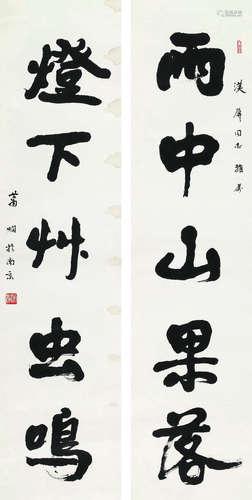 漢屏同志雅属
雨中山果落
燈下艸虫鳴
蕭嫻於南京